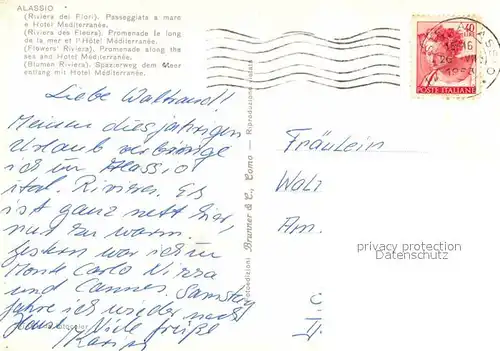 ALASSIO
(Riviera dei Fiori). Passeggiata a mare
e Hotel Méditerranée.
(Riviera des Fleurs). Promenade le long
de la mer et l'Hôtel Méditerranée.
(Flowers' Riviera). Promenade along the
sea and Hotel Méditerranée.
(Blumen Riviera). Spazierweg dem Meer
entlang mit Hotel Méditerranée.
Liebe Waltraud!!
Meinen diesjährigen
Urlaub verbringe
ich in Alassio
ital. Riviera. Es
ist ganz nett hier,
nur zu warm.
Gestern war ich in
Monte Carlo Nizza
und Cannes. Samstag
fahre ich wieder nach
Haus. Viele Grüße
Karin
Fotoedizioni Brunner & C., Como — Riproduzione vietata
POSTE ITALIANE
Fräulein
Wal
Am.
privacy protection
Datenschutz